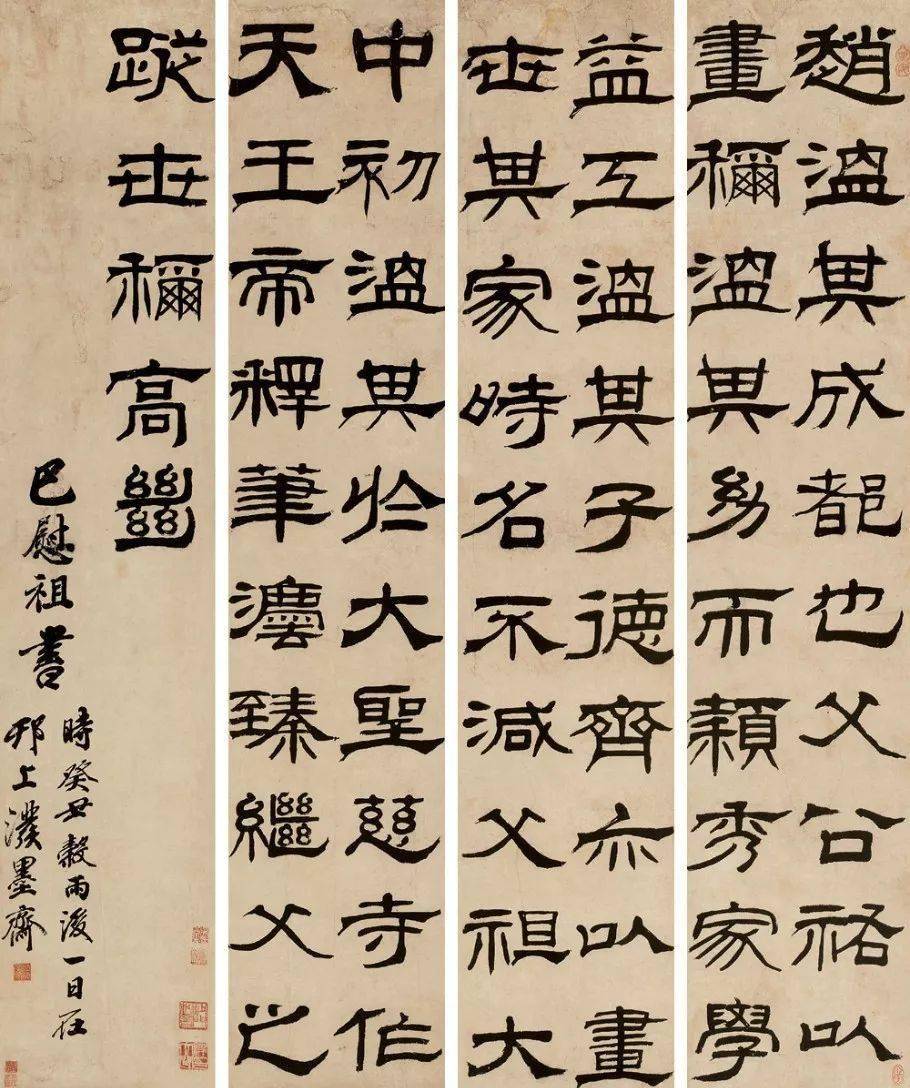 趙温其成都也父公祐以
畫穪温其㓜而穎秀家學
益工温其子德齊亦以畫
世其家時名不減父祖大
中初温其於大聖慈寺作
天王帝釋筆灋臻繼父之
蹤世穪高𢇍
巴慰祖書
時癸丑穀雨後一日在
邗上墨齋